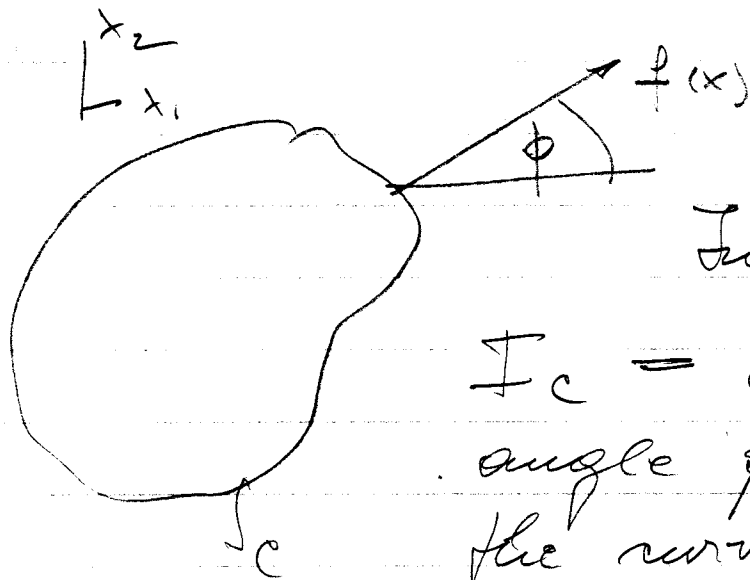 x₂
x₁
f(x)
ϕ
I_c =
angle
the curv
c